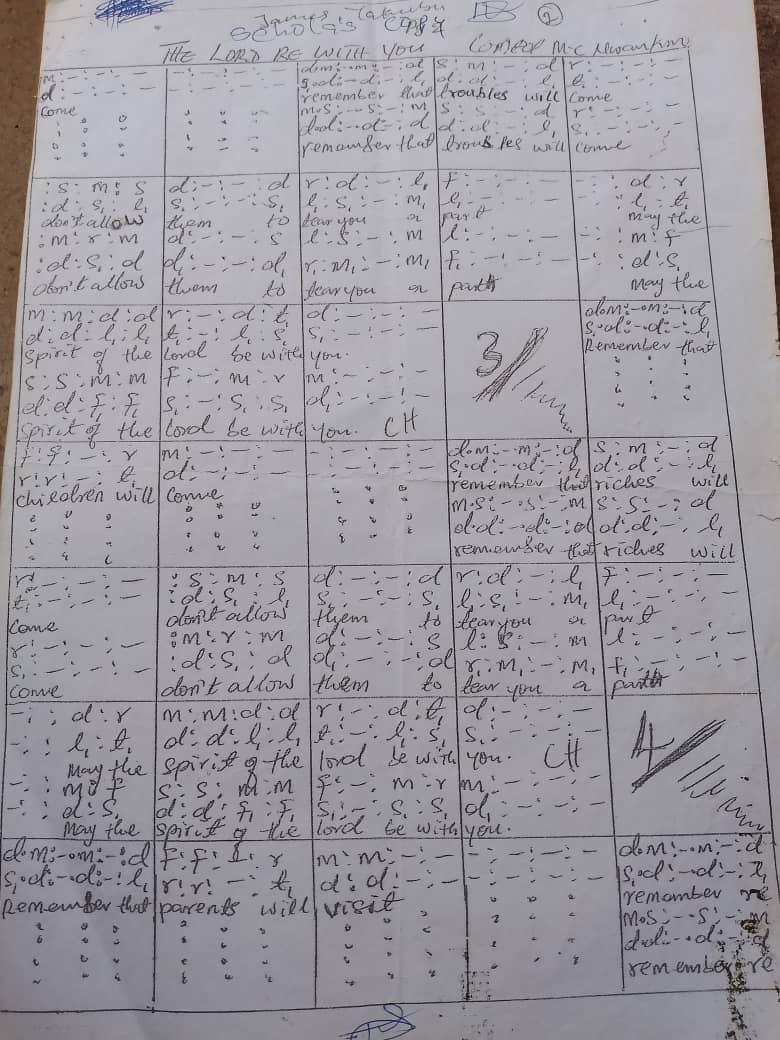 James
Scholas Copy ②
THE LORD BE WITH YOU COMPOSED M.C Nwankwo
m:-:-:- -:-:-:- d.m:-.m:-:d s:m:-:d r:-:-:-
d:-:-:- -:-:-:- s.d:-.d:-:l, d:d:-:l, t,:-:-:-
come remember that troubles will come
" " " " " " m.s:-.s:-:m s:s:-:d r:-:-:-
" " " " " " d.d:-.d:-:d d:d:-:l, s,:-:-:-
" " " " " " remember that troubles will come
:s:m:s d:-:-:d r:d:-:l, f:-:-:- -:-:d:r
:d:s,:l, s,:-:-:s, l,:s,:-:m, l,:-:-:- -:-:l,:t,
don't allow them to tear you a part may the
:m:r:m d:-:-:s l:s:-:m l:-:-:- -:-:m:f
:d:s,:d d,:-:-:d, r,:m,:-:m, f,:-:-:- -:-:d:s,
don't allow them to tear you a part may the
m:m:d:d r:-:d:t, d:-:-:- d.m:-.m:-:d
d:d:l,:l, t,:-:l,:s, s,:-:-:- 3/ s.d:-.d:-:l,
spirit of the Lord be with you. Remember that
s:s:m:m f:-:m:r m:-:-:- " " "
d:d:f,:f, s,:-:s,:s, d,:-:-:- " " "
spirit of the lord be with you. CH " " "
f:f:-:r m:-:-:- -:-:-:- d.m:-.m:-:d s:m:-:d
r:r:-:t, d:-:-:- -:-:-:- s.d:-.d:-:l, d:d:-:l,
children will come remember that riches will
" " " " " " " " " m.s:-.s:-:m s:s:-:d
" " " " " " " " " d.d:-.d:-:d d:d:-:l,
" " " " " " " " " remember that riches will
r:-:-:- :s:m:s d:-:-:d r:d:-:l, f:-:-:-
t,:-:-:- :d:s,:l, s,:-:-:s, l,:s,:-:m, l,:-:-:-
come don't allow them to tear you a part
r:-:-:- :m:r:m d:-:-:s l:s:-:m l:-:-:-
s,:-:-:- :d:s,:d d,:-:-:d r,:m,:-:m, f,:-:-:-
come don't allow them to tear you a part
-:-:d:r m:m:d:d r:-:d:t, d:-:-:-
-:-:l,:t, d:d:l,:l, t,:-:l,:s, s,:-:-:- 4/
May the spirit of the lord be with you. CH
-:-:m:f s:s:m:m f:-:m:r m:-:-:-
-:-:d:s, d:d:f,:f, s,:-:s,:s, d,:-:-:-
May the spirit of the lord be with you.
d.m:-.m:-:d f:f:-:r m:m:-:- -:-:-:- d.m:-.m:-:d
s,.d:-.d:-:l, r:r:-:t, d:d:-:- -:-:-:- s.d:-.d:-:l,
Remember that parents will visit remember re
" " " " " " " " " " " " m.s:-.s:-:m
" " " " " " " " " " " " d.d:-.d:-:d
" " " " " " " " " " " " remember re